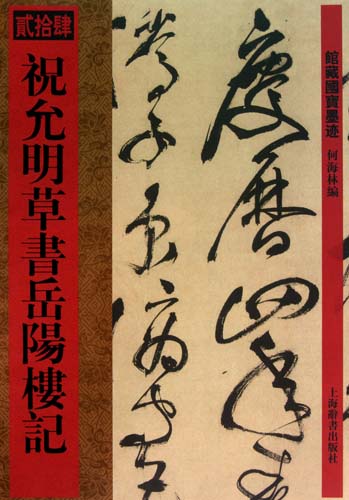 貳拾肆
祝允明草書岳陽樓記
館藏國寶墨迹
何海林編
慶曆四年春
滕子京謫守
上海辭書出版社